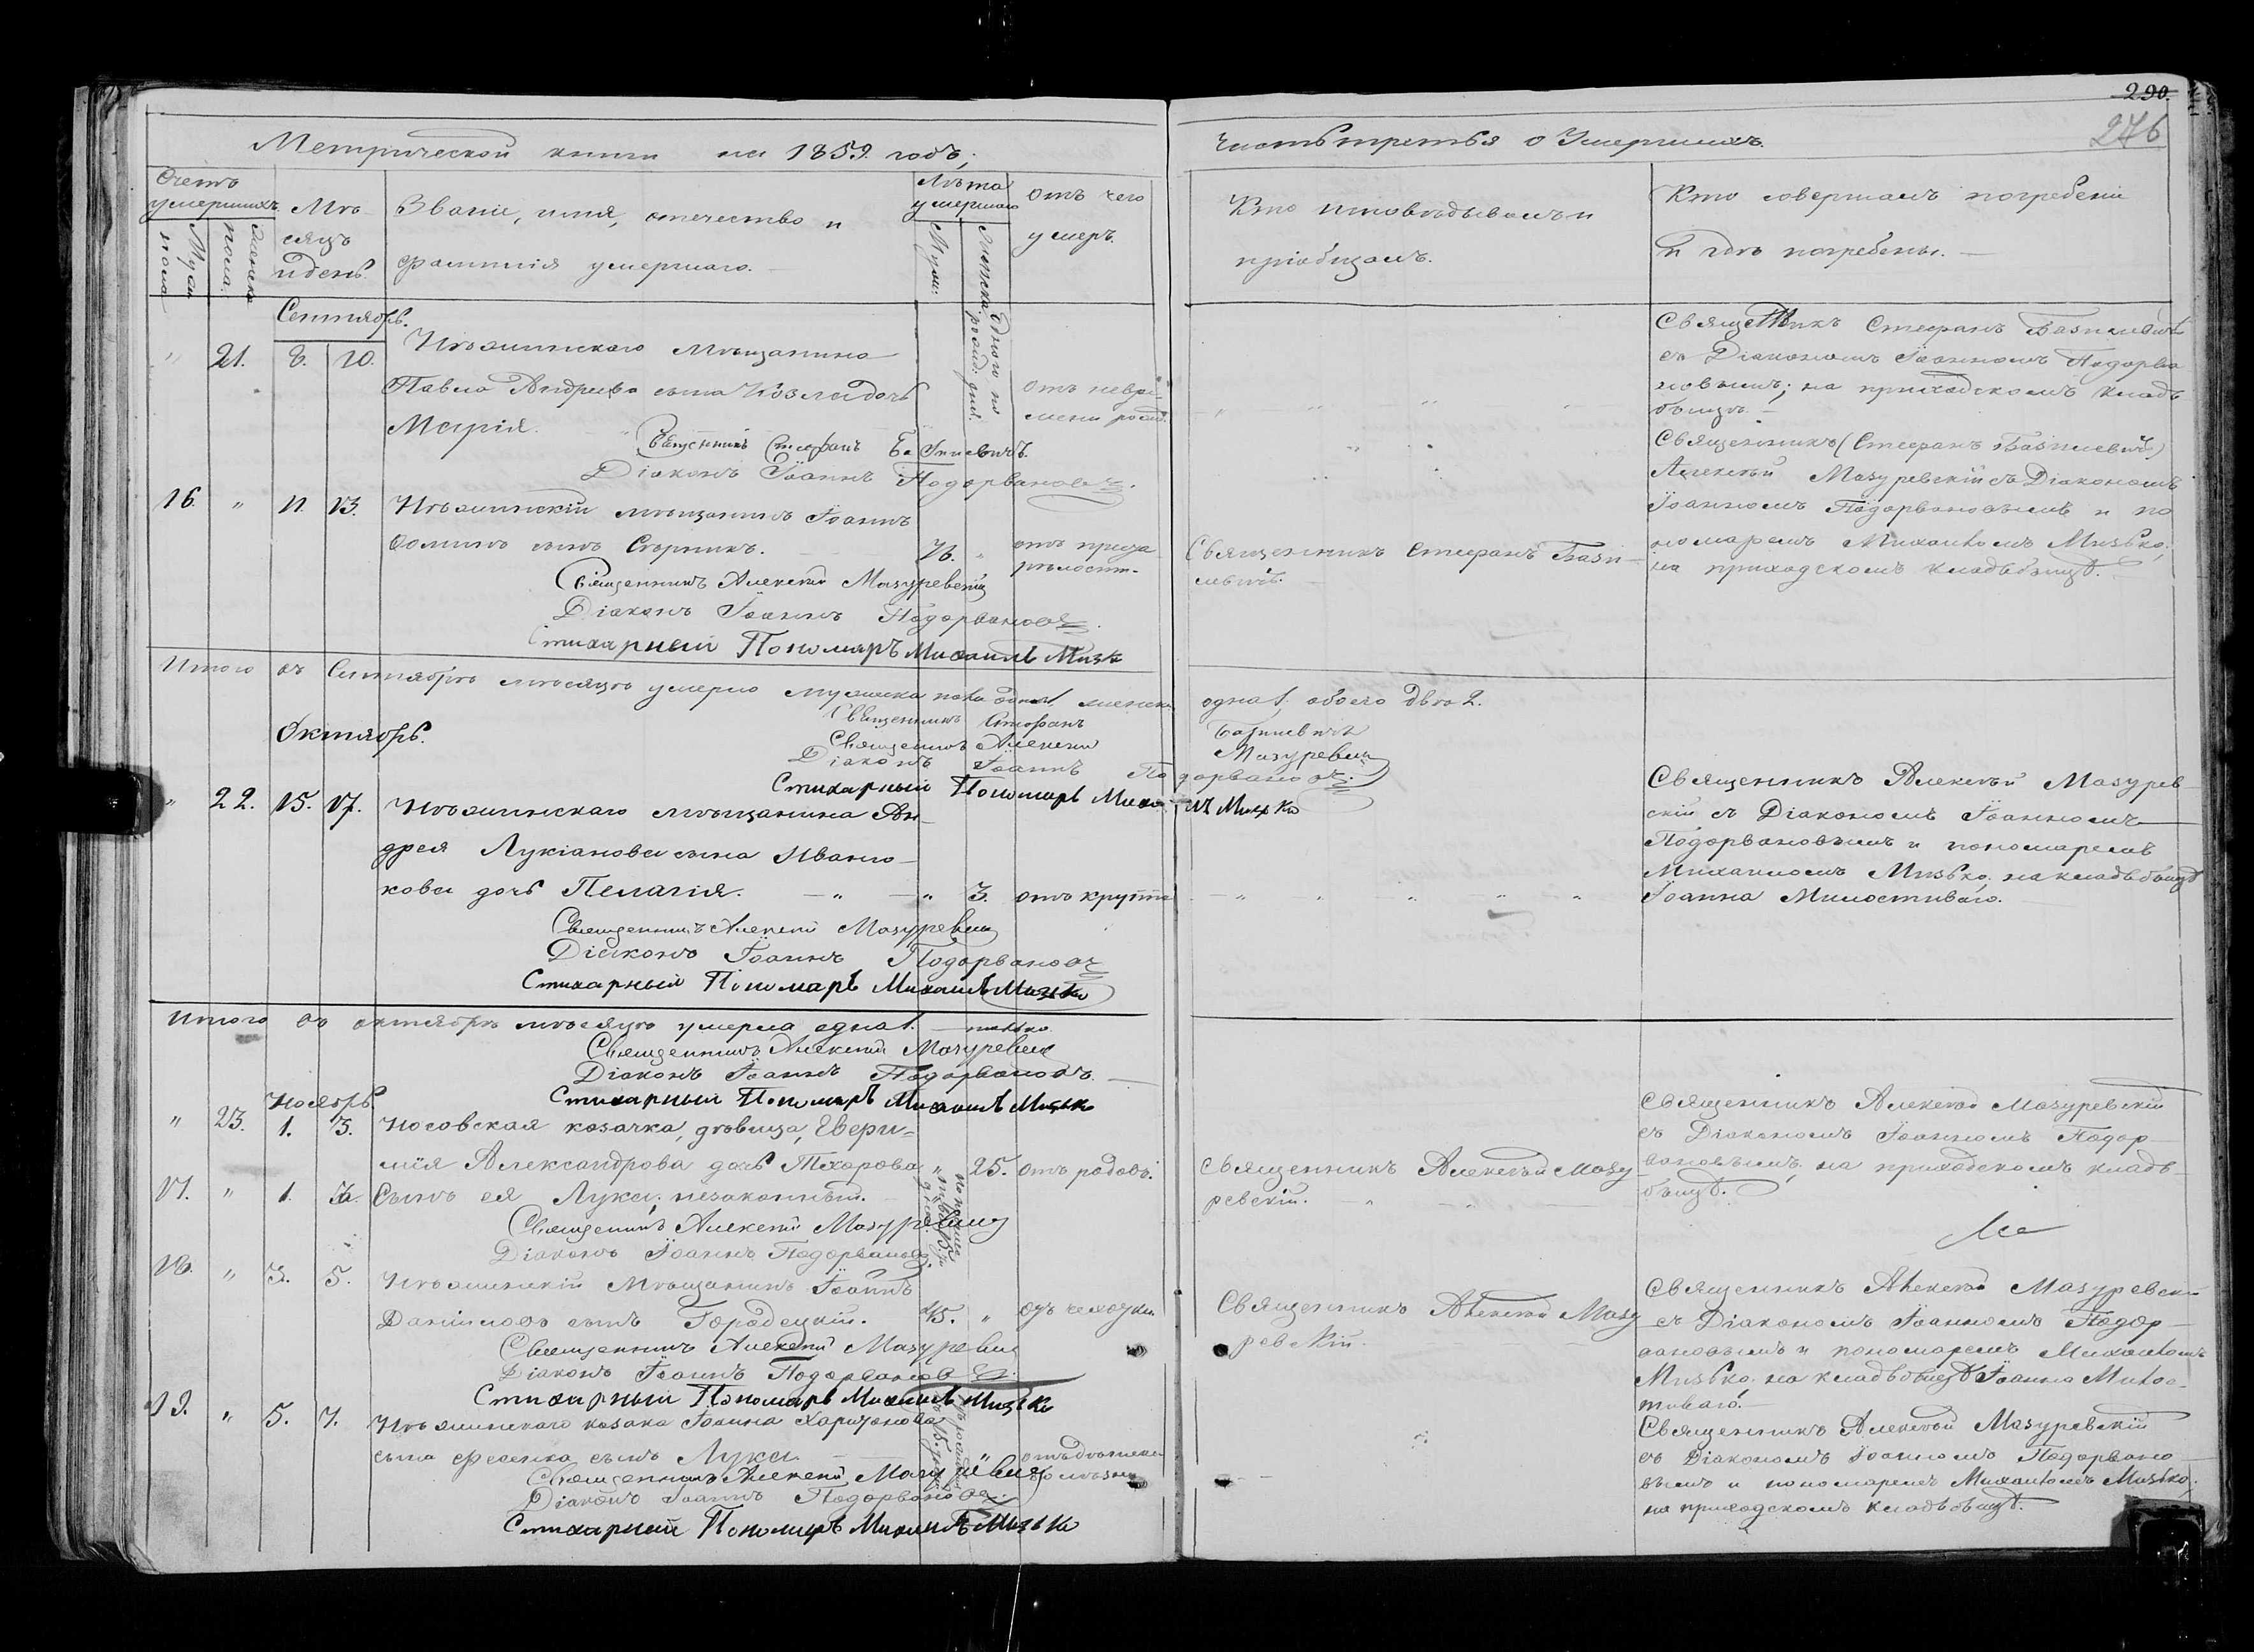 290.
276
Метрической книги на 1859 годъ,
Часть третья о Умершихъ.
Счетъ умершихъ.
Муж. пола
Женска пола.
Мѣсяцъ и день.
Званіе, имя, отечество и
фамилія умершаго.
Лѣта умершаго
Муж:
Женска.
Отъ чего
умеръ.
Кто исповѣдывалъ и
пріобщалъ.
Кто совершалъ погребеніе
и гдѣ погребены.
Сентябрь.
" 21. 8. 10. Нѣжинскаго мѣщанина
Павла Андреева сына Козла дочь
Марія.
одного по рожд: дня.
отъ невре-
мени рожд.
Священникъ Стефанъ Базилевичъ
Діаконъ Іоаннъ Подорвановъ.
Священникъ Стефанъ Базилевичъ
съ Діакономъ Іоанномъ Подорва
новымъ; на приходскомъ клад
бищѣ.
16. " 11. 13. Нѣжинскій мѣщанинъ Іоаннъ
Ѳоминъ сынъ Спорникъ. 76. "
отъ преста
рѣлости.
Священникъ Алексей Мазуревскій
Діаконъ Іоаннъ Подорвановъ.
Стихарный Пономарь Михаилъ Мизко
Священникъ Стефанъ Бази-
левичъ.
Священникъ (Стефанъ Базилевичъ)
Алексѣй Мазуревскій съ Діакономъ
Іоанномъ Подорвановымъ и по
номаремъ Михаиломъ Мизько;
на приходскомъ кладбищѣ.
Итого въ Сентябрѣ мѣсяцѣ умерло мужеска пола одинъ 1. женска одна 1. обоего двое 2.
Священникъ Стефанъ Базилевичъ
Священникъ Алексей Мазуревскій
Діаконъ Іоаннъ Подорвановъ.
Стихарный Пономарь Михаилъ Мизко
Октябрь.
" 22. 15. 17. Нѣжинскаго мѣщанина Ан-
дрея Лукіанова сына Иваню-
кова дочь Пелагія. " 3. отъ круппа
Священникъ Алексей Мазуревскій
Діаконъ Іоаннъ Подорвановъ
Стихарный Пономарь Михаилъ Мизько
Священникъ Алексѣй Мазурев
скій съ Діакономъ Іоанномъ
Подорвановымъ и пономаремъ
Михаиломъ Мизько; на кладбищѣ
Іоанна Милостиваго.
Итого въ октябрѣ мѣсяцѣ умерла одна 1. только
Священникъ Алексей Мазуревскій
Діаконъ Іоаннъ Подорвановъ.
Стихарный Пономарь Михаилъ Мизько
Ноябрь.
" 23. 1. 3. Носовская козачка, дѣвица,
Александрова дочь " 25. отъ родовъ.
17. " 1. Сынъ ея Лука, незаконный.
Священникъ Алексей Мазуревскій
Діаконъ Іоаннъ Подорвановъ.
Священникъ Алексѣй Мазу-
ревскій.
Священникъ Алексѣй Мазуревскій
съ Діакономъ Іоанномъ Подор-
вановымъ; на приходскомъ клад-
бищѣ.
18. " 3. 5. Нѣжинскій Мѣщанинъ Іоаннъ
Даніиловъ сынъ Городецкій. 45. " отъ чахотки
Священникъ Алексей Мазуревскій
Діаконъ Іоаннъ Подорвановъ.
Стихарный Пономарь Михаилъ Мизько
Священникъ Алексѣй Мазу
ревскій.
Священникъ Алексѣй Мазуревскій
съ Діакономъ Іоанномъ Подор-
вановымъ и пономаремъ Михаиломъ
Мизько, на кладбищѣ Іоанна Милос-
тиваго.
19. " 5. 7. Нѣжинскаго козака Іоанна Харитонова
сына Фесенка сынъ Лука. "
Священникъ Алексей Мазуревскій
Діаконъ Іоаннъ Подорвановъ.
Стихарный Пономарь Михаилъ Мизько
Священникъ Алексѣй Мазуревскій
съ Діакономъ Іоанномъ Подорвано
вымъ и пономаремъ Михаиломъ Мизько;
на приходскомъ кладбищѣ.